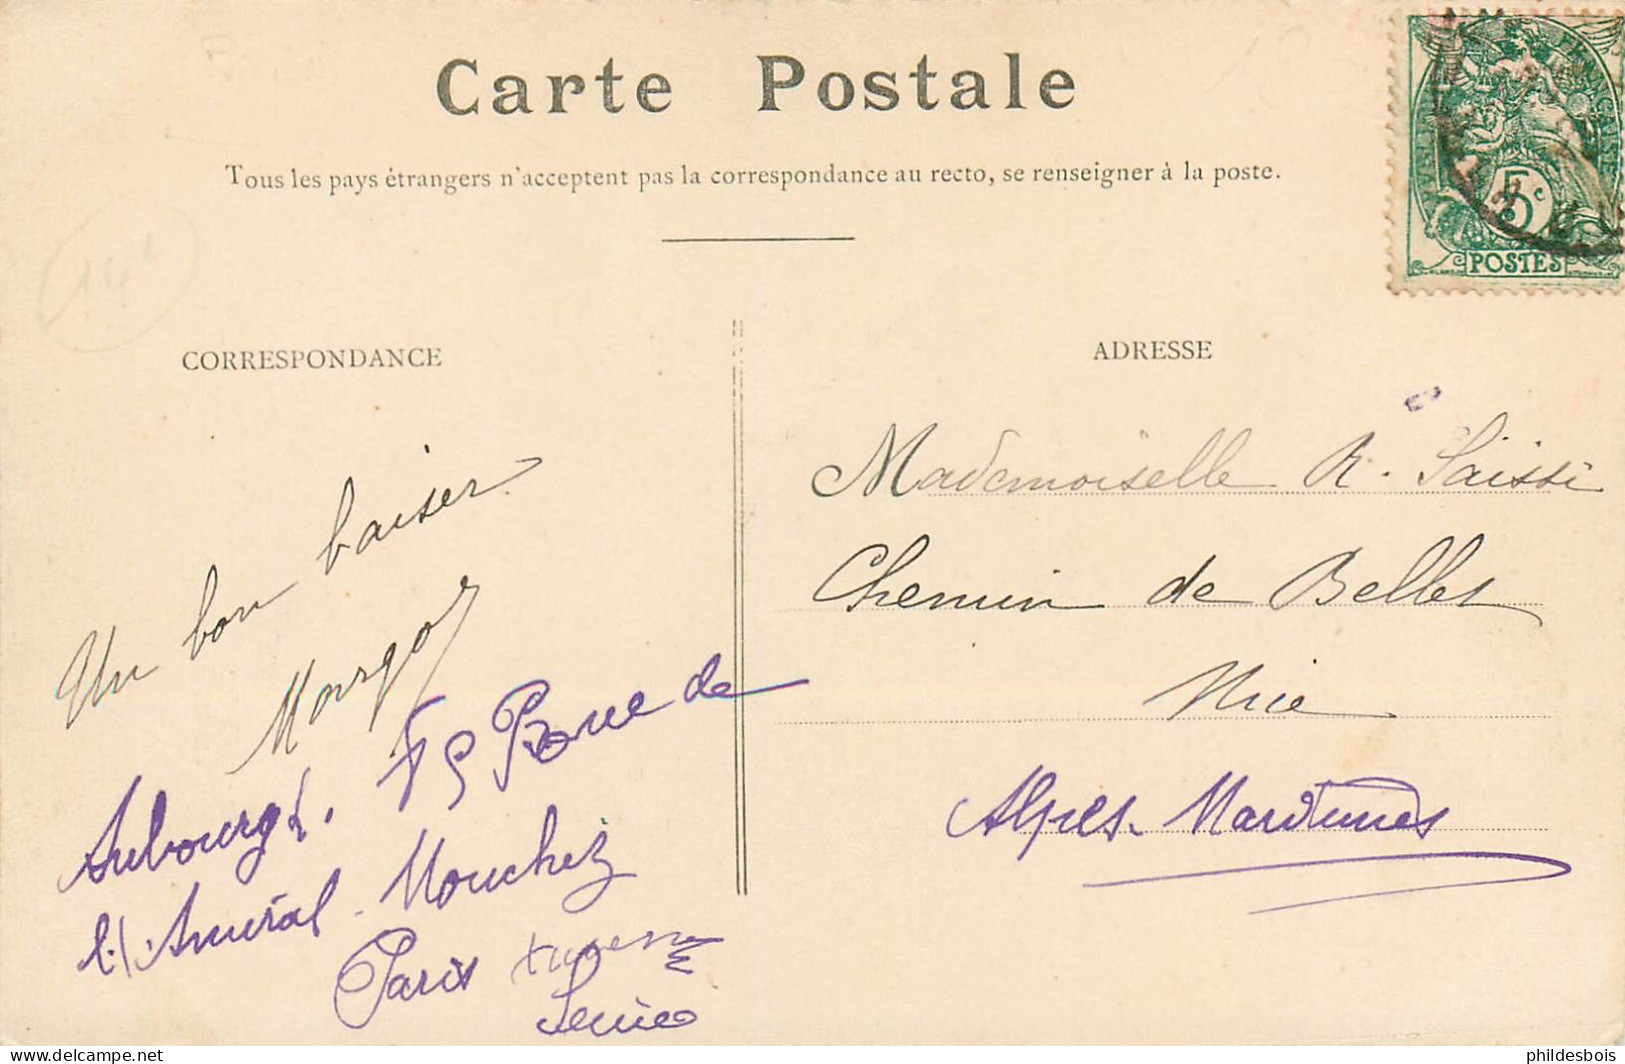 Carte Postale
Tous les pays étrangers n'acceptent pas la correspondance au recto, se renseigner à la poste.
14
5c
POSTES
CORRESPONDANCE
ADRESSE
Un bon baiser
Margot
Rue de
l'Amiral Mouchez
Paris
Mademoiselle R. Saissi
Chemin de Bellet
Nice
Alpes-Maritimes
phildesbois